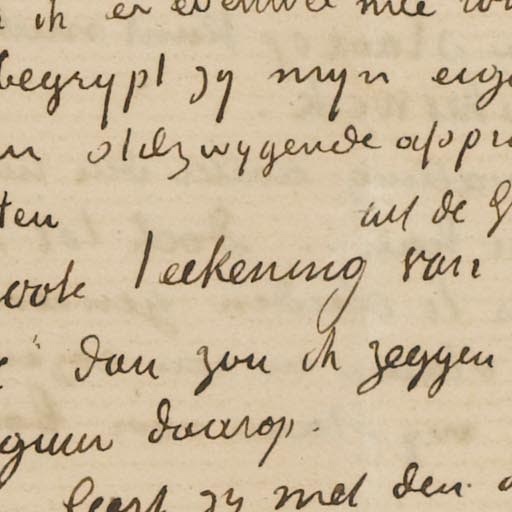 ik er evenwel mee
begrypt zy myn eige
stilzwygende appr
ten uit de G
ook teekening van
dan zou ik zeggen
daarop.
zy met den